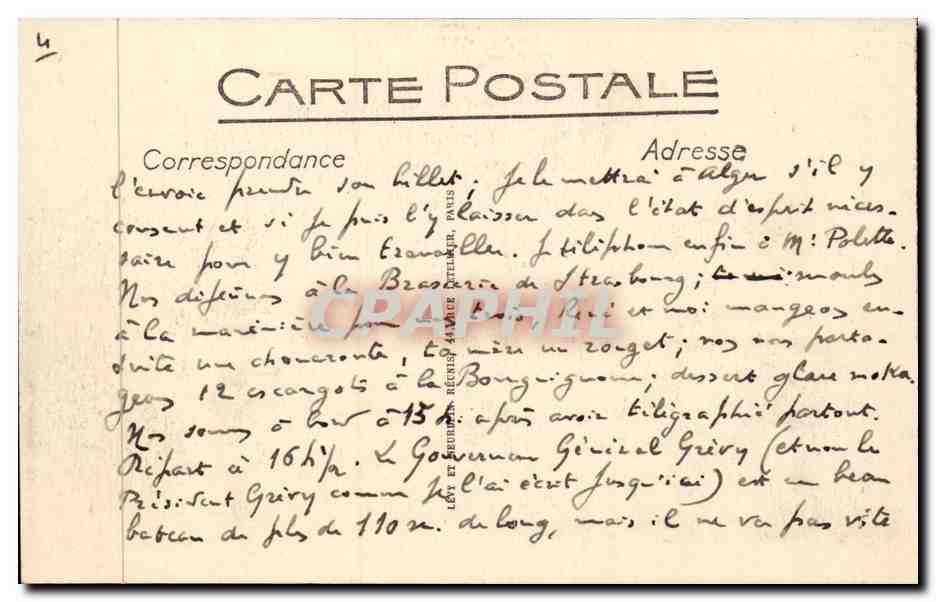 4
CARTE POSTALE
Correspondance
Adresse
l'envoie prendre son billet; Je le mettrai à Alger s'il y
consent et si je puis l'y laisser dans l'état d'esprit néces-
saire pour y bien travailler. Je téléphone enfin à Mr Polette.
Nos déjeûnons à la Brasserie de Strasbourg; moules
à la marinière pour nous trois, René et moi mangeons en-
suite une choucroute, ta mère un rouget; nos nos parta-
geons 12 escargots à la Bourguignonne; dessert glace moka.
Nos sommes à bord à 15h. après avoir télégraphié partout.
Départ à 16h 1/2. Le Gouverneur Général Grévy (et non le
Président Grévy comme je l'ai écrit jusqu'ici) est un beau
bateau de plus de 110 m. de long, mais il ne va pas vite
LÉVY ET NEURDEIN RÉUNIS, 44, RUE LETELLIER, PARIS
CPAPHIL